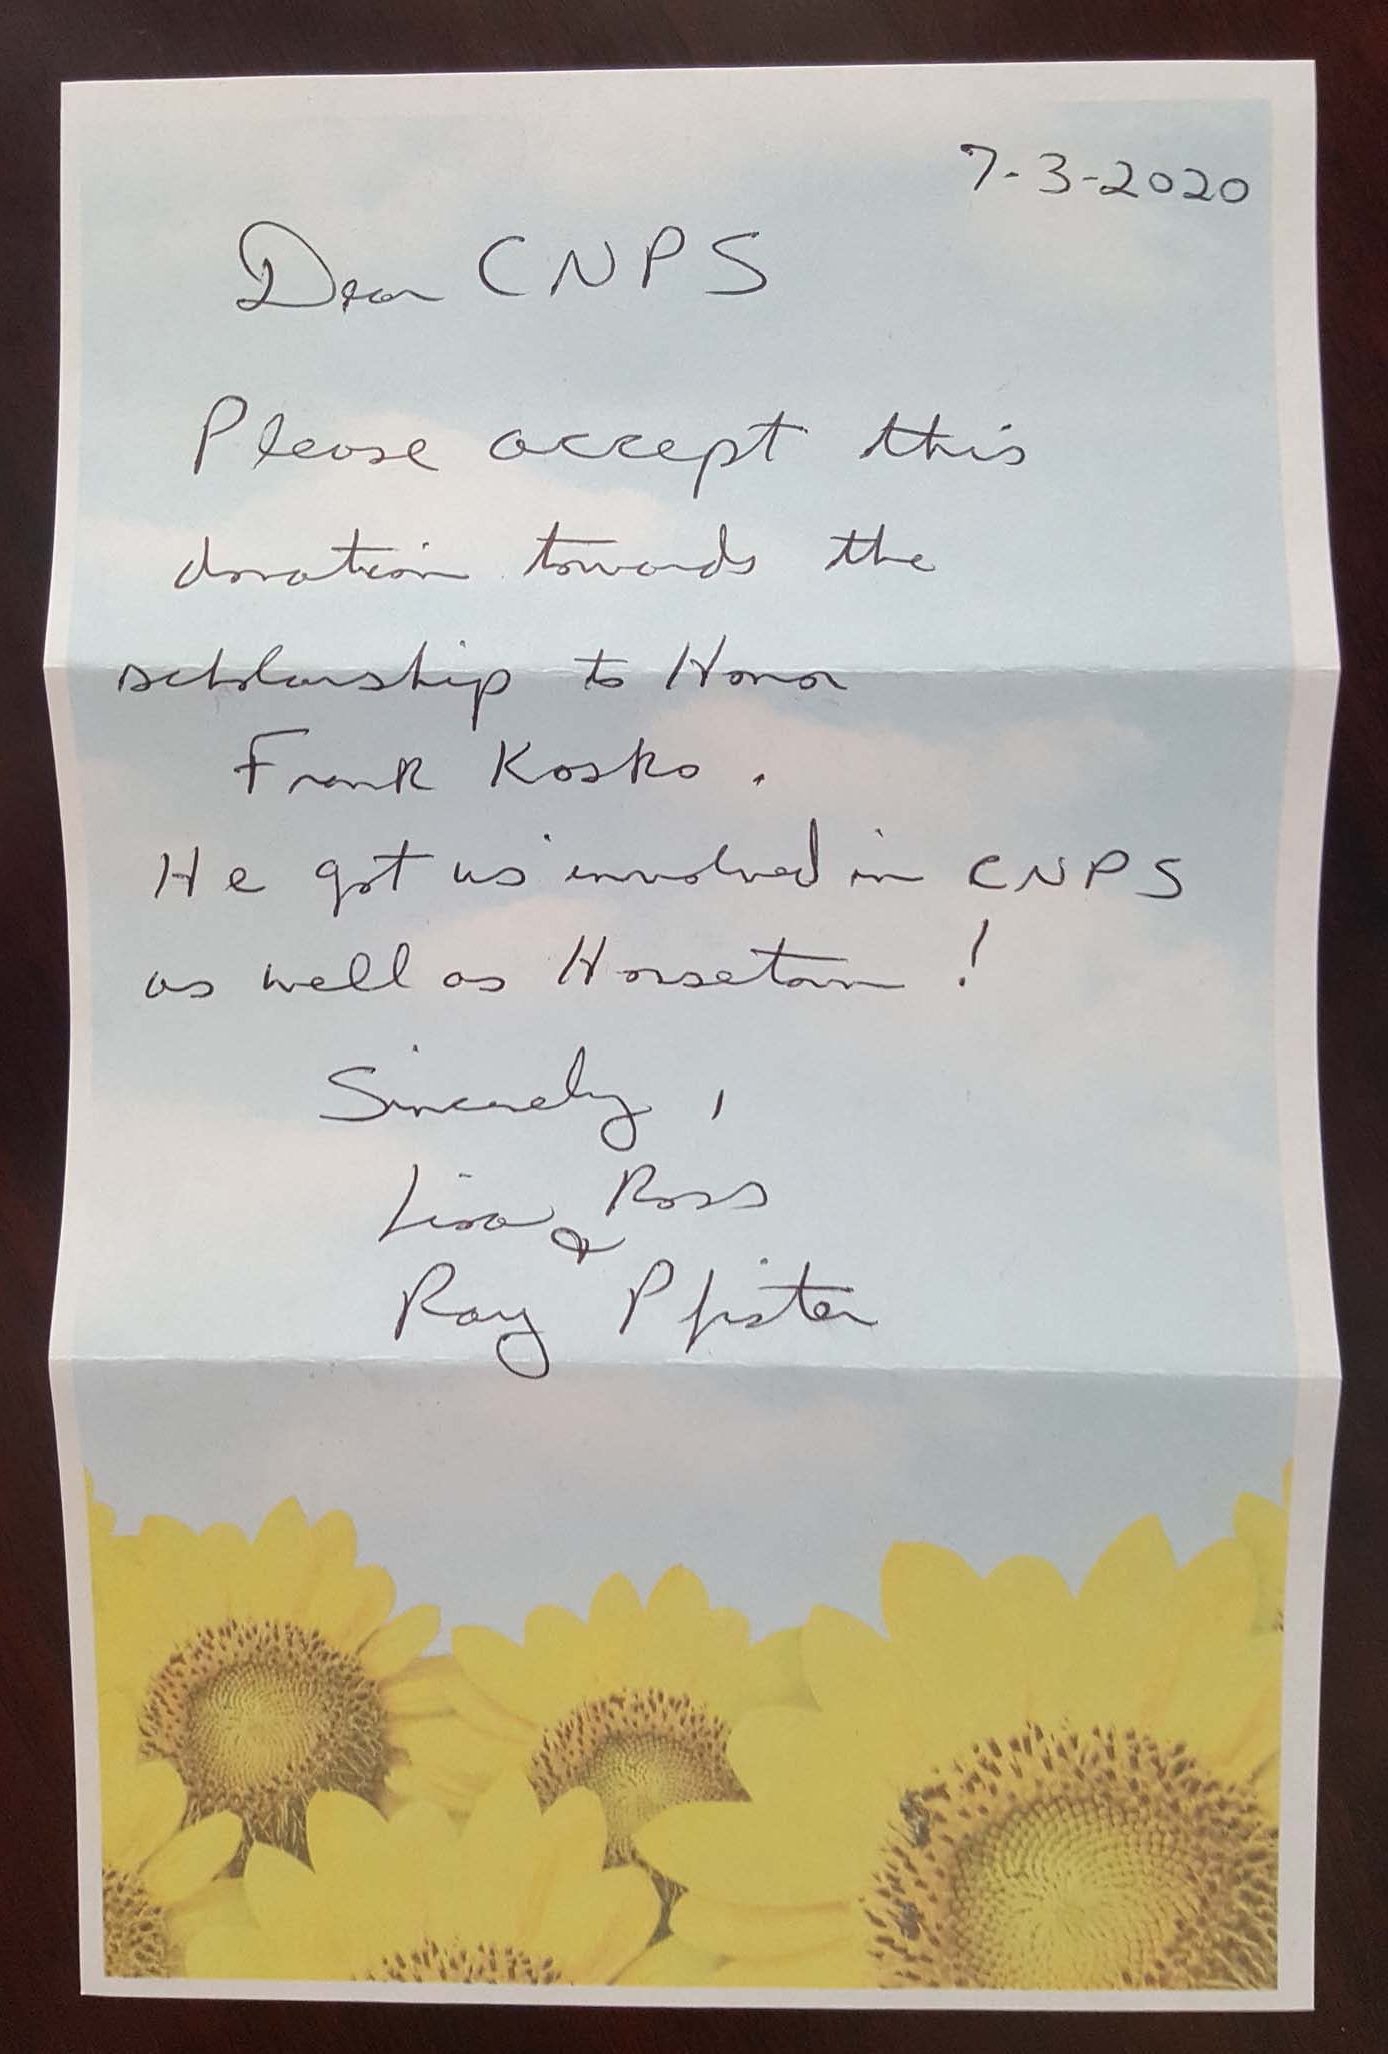 7-3-2020
Dear CNPS
Please accept this
donation towards the
scholarship to Honor
Frank Kosko.
He got us involved in CNPS
as well as Horsetown!
Sincerely,
Lisa Ross
&
Ray Pfister